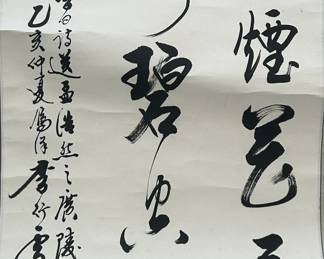 煙花
碧空
白詩送孟浩然之廣陵
乙亥仲夏 李行